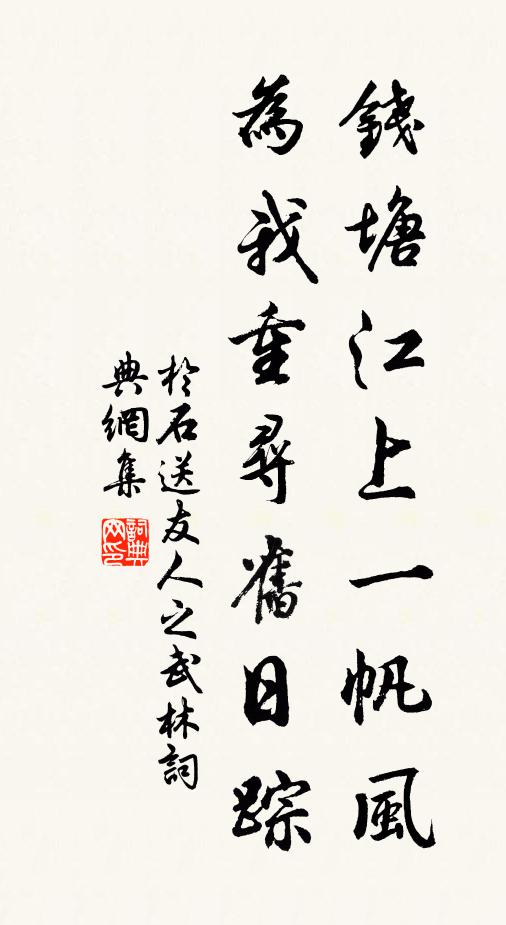 錢塘江上一帆風
為我重尋舊日踪
於石送友人之武林詞
典網集
詞典网印